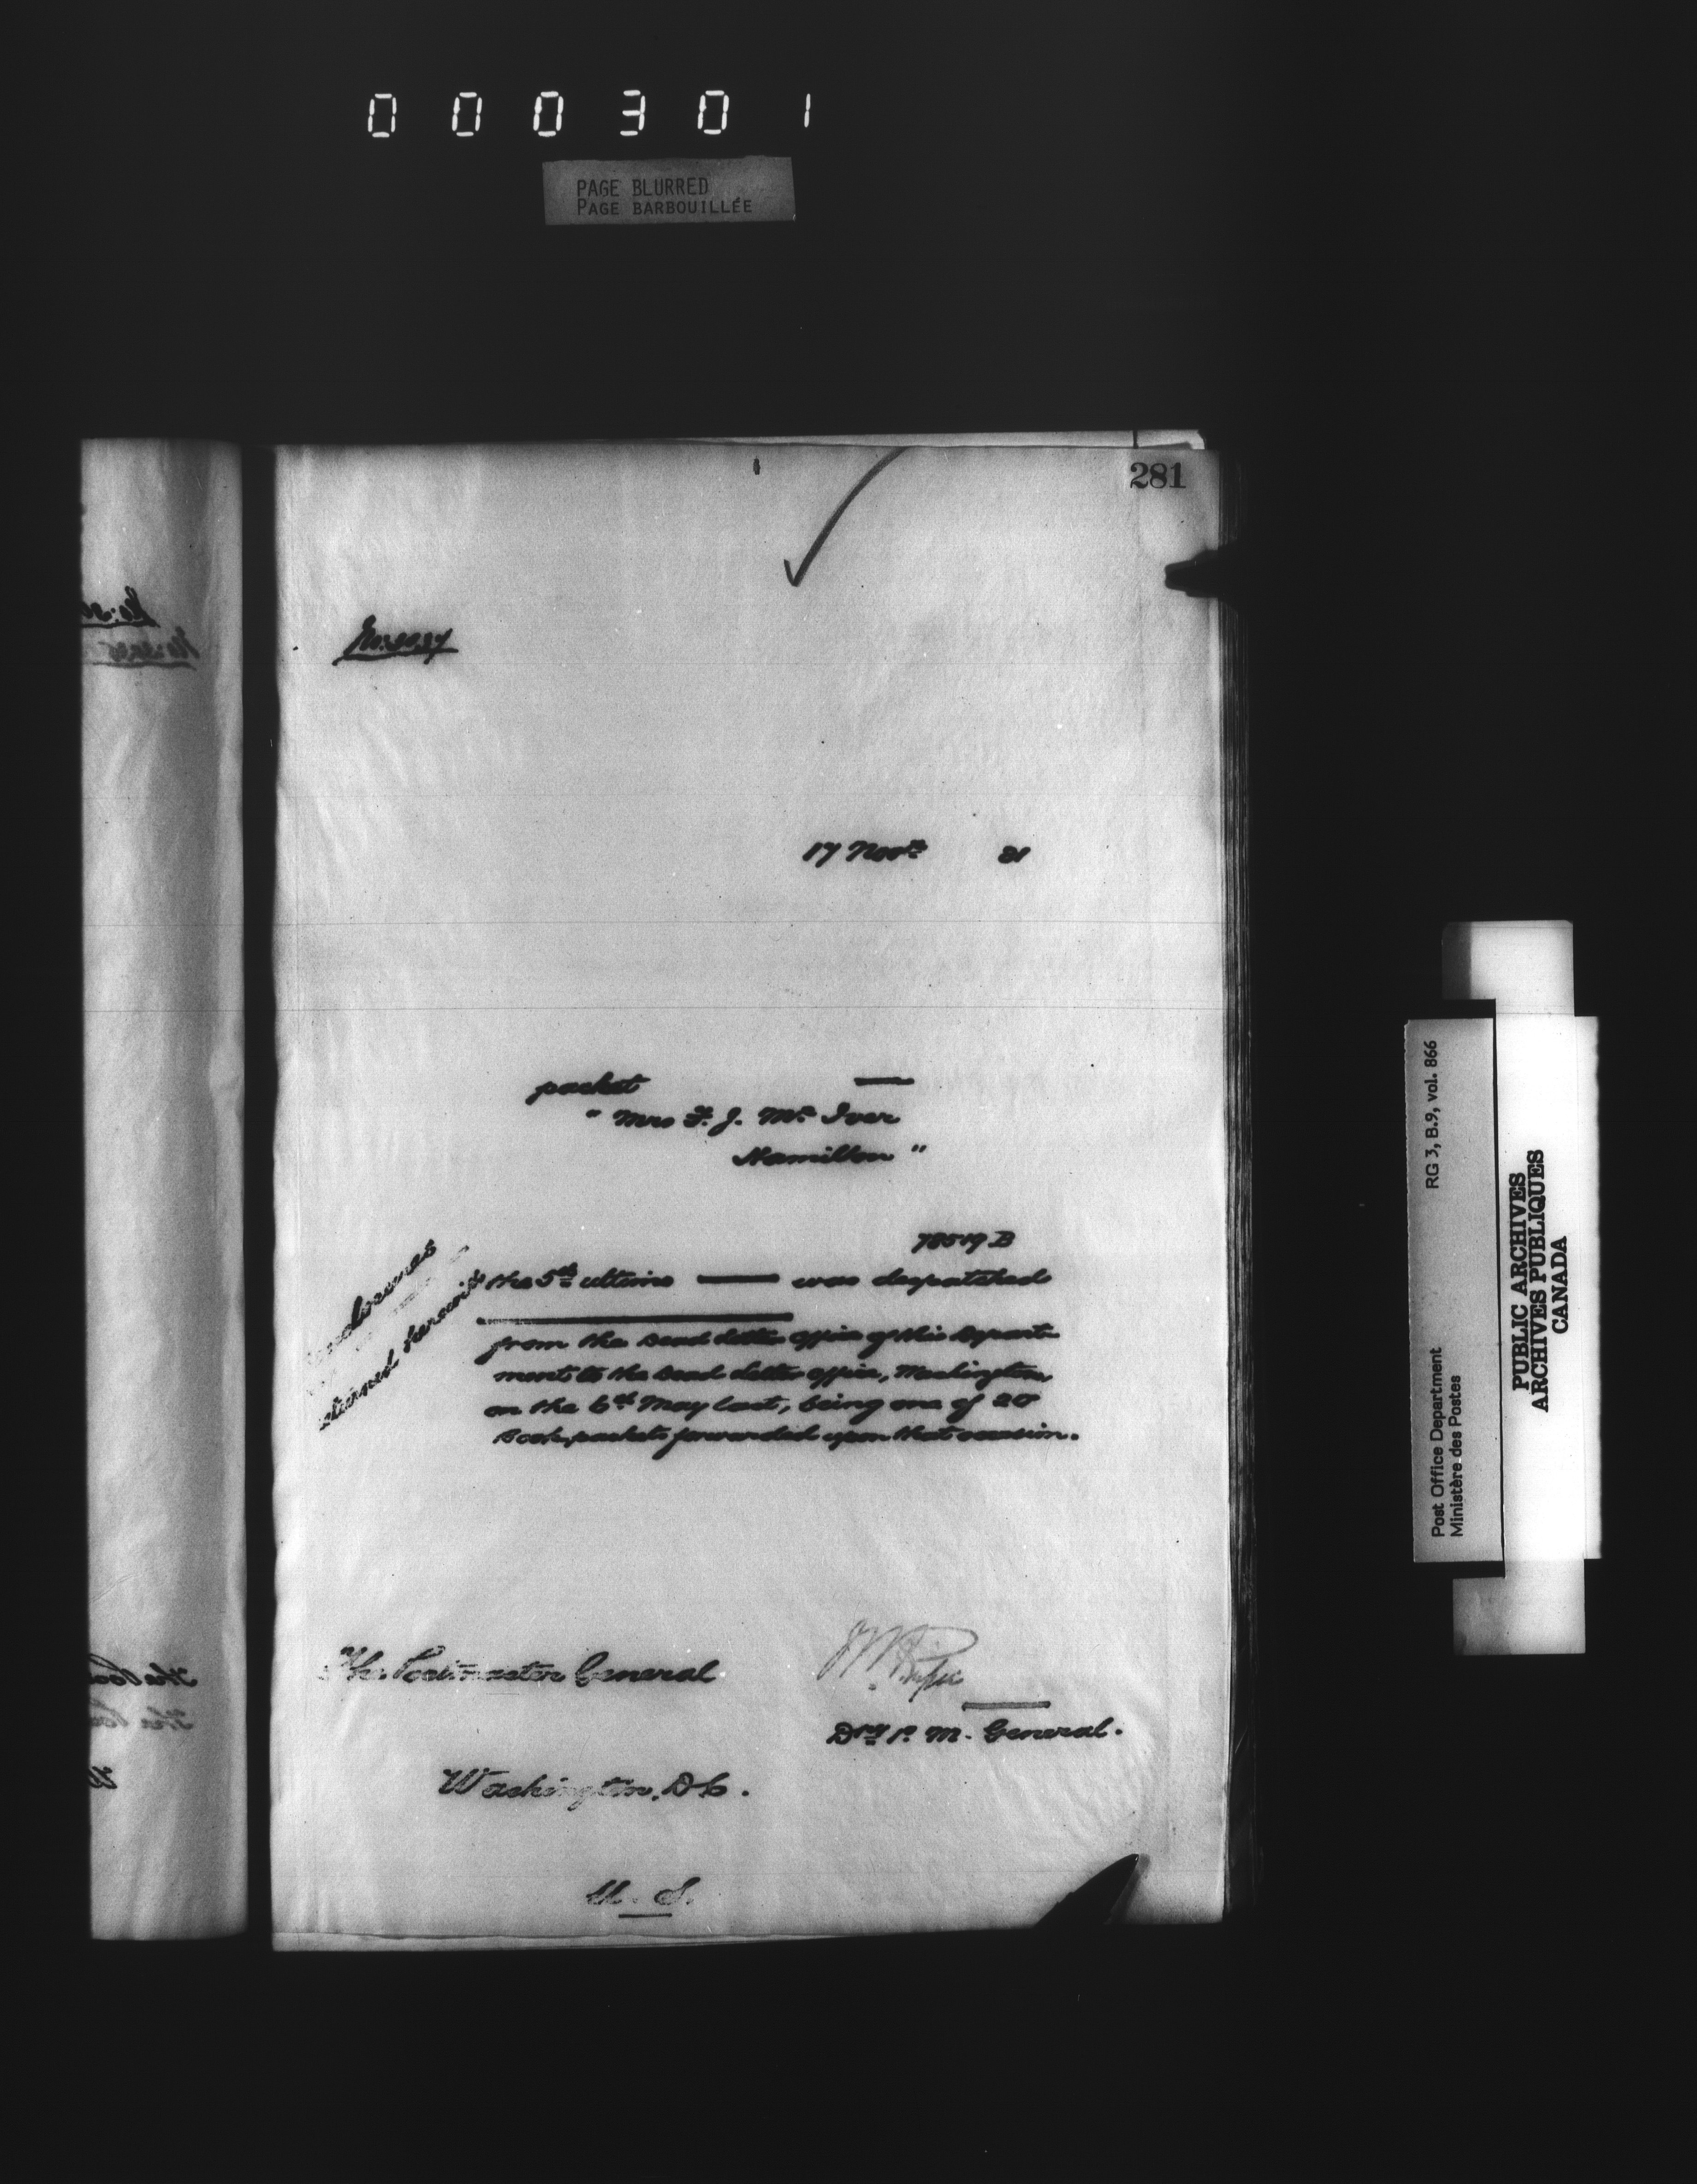 000301
PAGE BLURRED
PAGE BARBOUILLÉE
281
17 Novr 81
packet —
" Mrs F. J. Mc Iver
Hamilton "
78519 B
the 5th ultimo — was despatched
from the Dead Letter Office of this Depart-
ment to the Dead Letter Office, Washington
on the 6th May last, being one of 20
Book packets forwarded upon that occasion.
The Postmaster General
Dpy P. M. General.
Washington, D.C.
U. S.
Post Office Department
Ministère des Postes
RG 3, B.9, vol. 866
PUBLIC ARCHIVES
ARCHIVES PUBLIQUES
CANADA